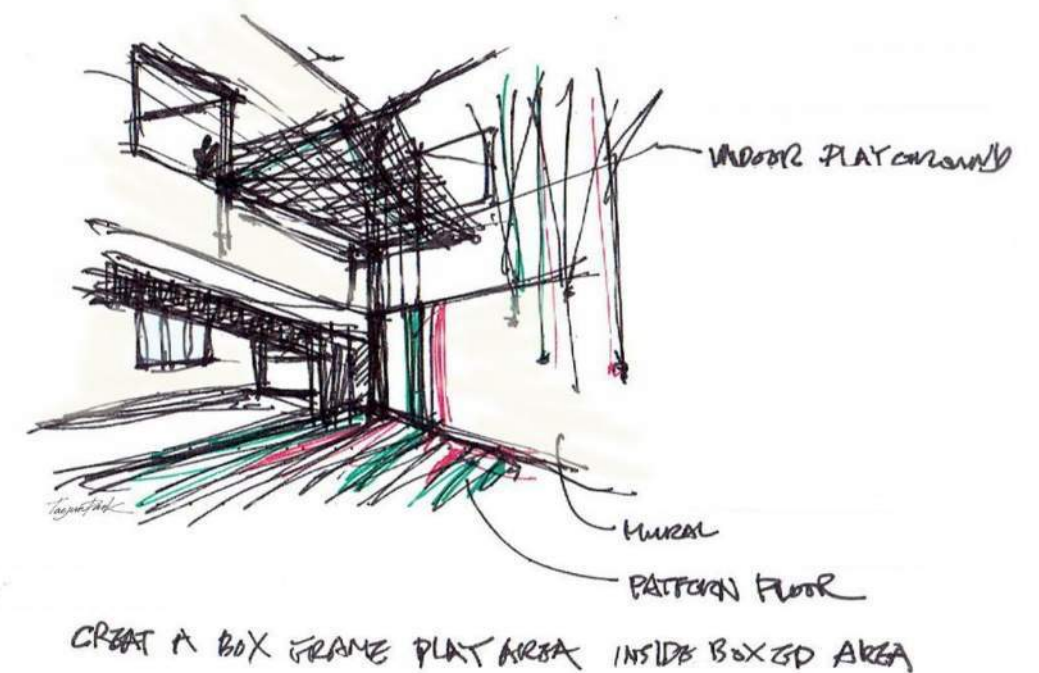 INDOOR PLAYGROUND
MURAL
PATTERN FLOOR
CREAT A BOX FRAME PLAY AREA INSIDE BOXED AREA